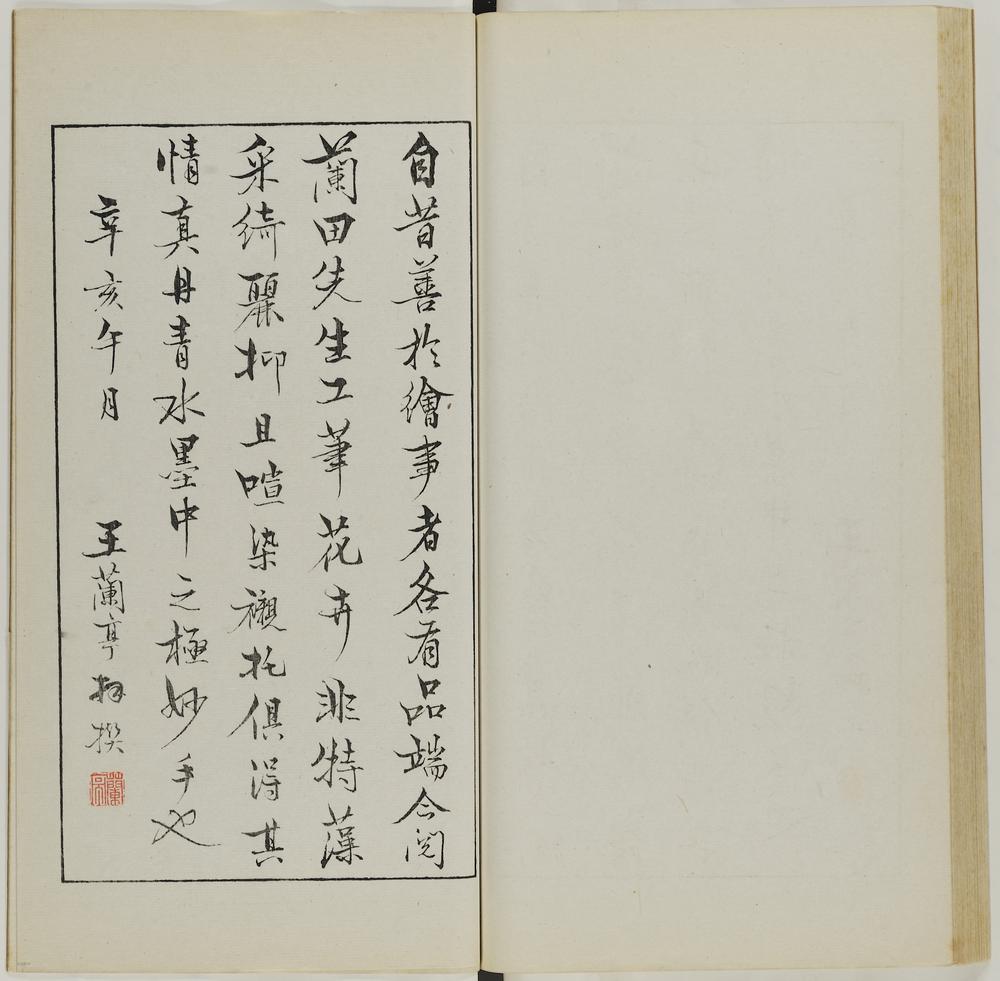 自昔善於繪事者各有品端今閱
蘭田先生工筆花卉非特藻
采綺麗抑且喧染襯托俱得其
情真丹青水墨中之極妙手也
辛亥午月
王蘭亭拜撰
蘭亭